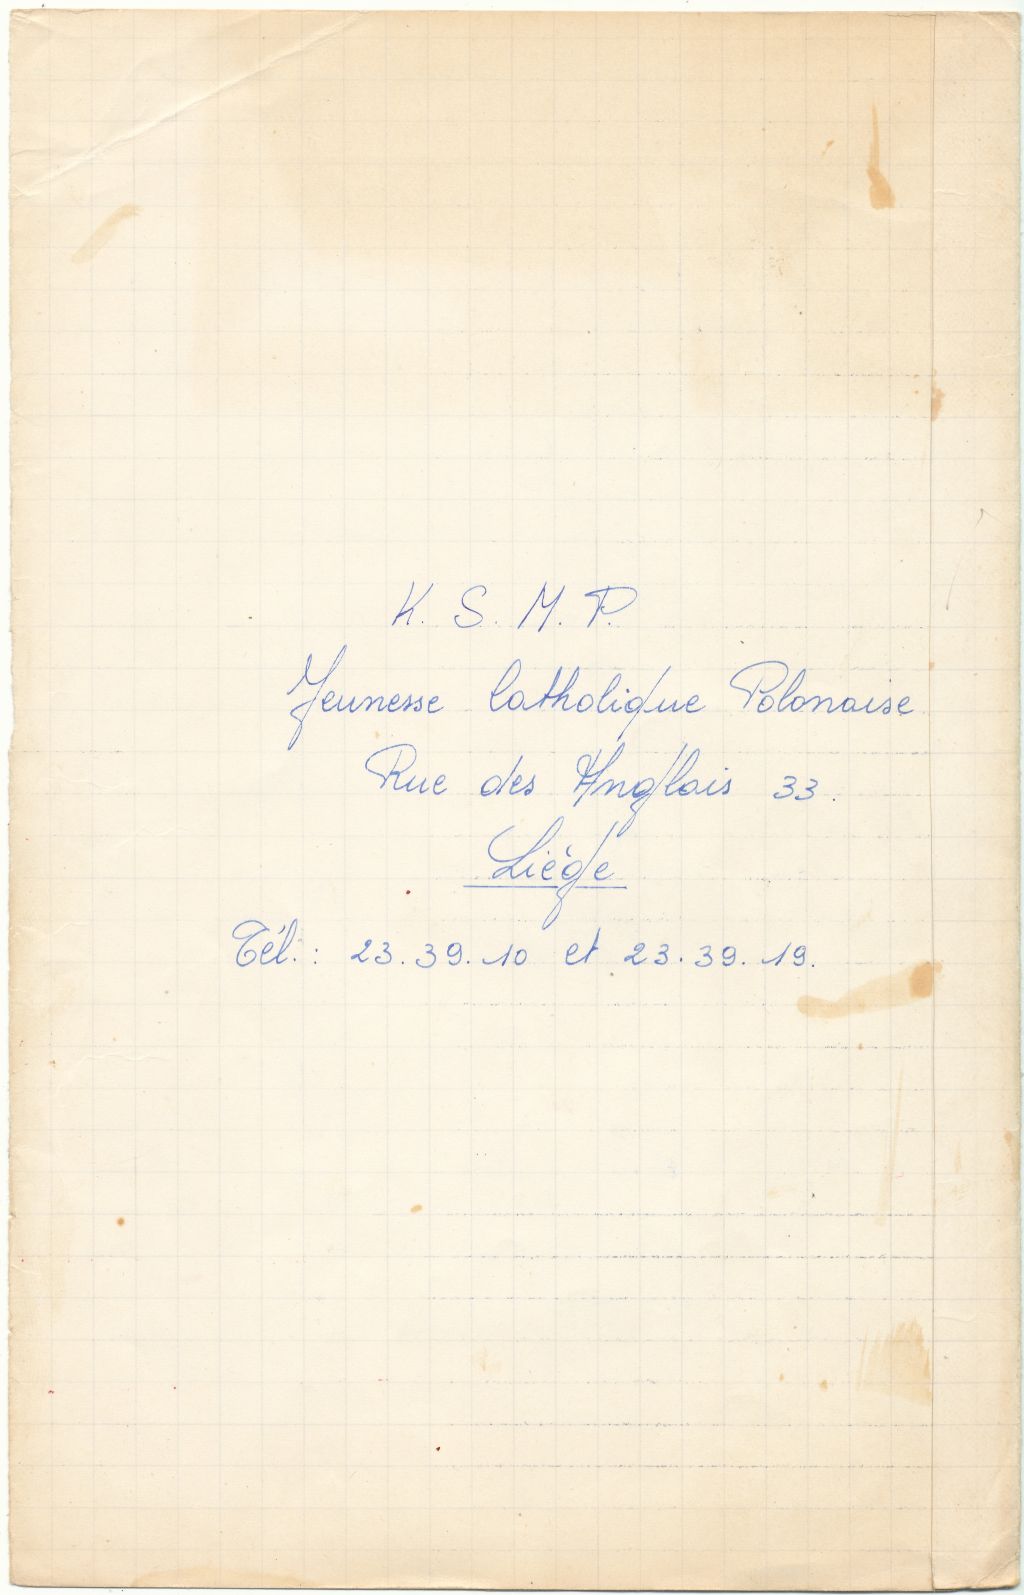 K. S. M. P.
Jeunesse Catholique Polonaise
Rue des Anglais 33.
Liège
Tél. : 23.39.10 et 23.39.19.